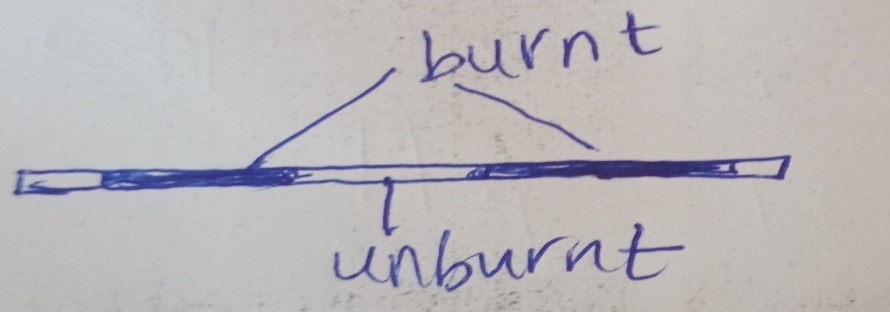 burnt
unburnt